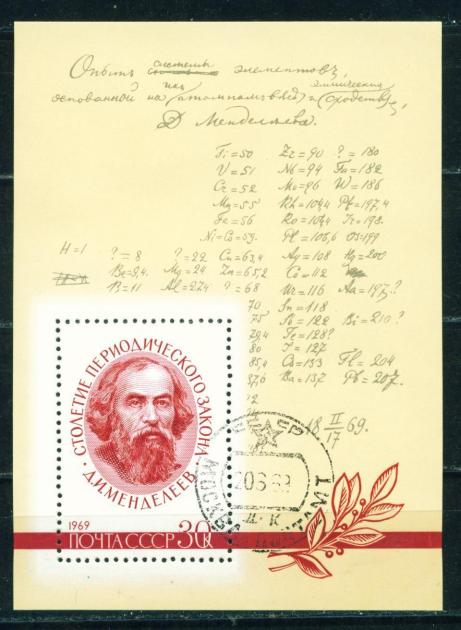 Опытъ системы элементовъ,
основанной на ихъ атомномъ вѣсѣ и химическомъ сходствѣ,
Д. Менделѣева.
Ti=50 Zr=90 ?=180
V=51 Nb=94 Ta=182
Cr=52 Mo=96 W=186
Mn=55 Rh=104,4 Pt=197,4
Fe=56 Ro=104,4 Ir=198.
Ni=Co=59. Pl=106,6 Os=199
H=1 ?=8 ?=22 Cu=63,4 Ag=108 Hg=200
Be=9,4. Mg=24 Zn=65,2 Cd=112
B=11 Al=27,4 ?=68 Ur=116 Au=197?
70 Sn=118
75 Sb=122 Bi=210?
79,4 Te=128?
80 I=127
85,4 Cs=133 Tl=204
87,6 Ba=137 Pb=207.
92
18 II/17 69.
СТОЛЕТИЕ ПЕРИОДИЧЕСКОГО ЗАКОНА
Д.И.МЕНДЕЛЕЕВ
1969
ПОЧТА СССР 30К
МОСКВА
ПОЧТАМТ